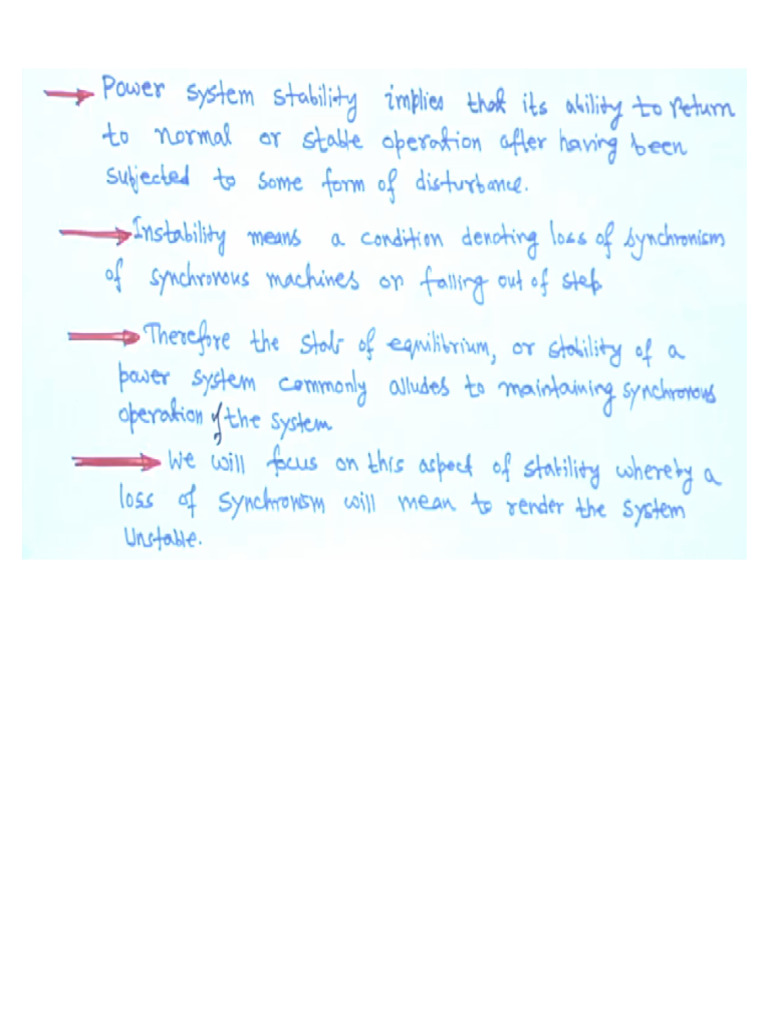 → Power system stability implies that its ability to return
to normal or stable operation after having been
subjected to some form of disturbance.
→ Instability means a condition denoting loss of synchronism
of synchronous machines or falling out of step
→ Therefore the state of equilibrium, or stability of a
power system commonly alludes to maintaining synchronous
operation of the system
→ We will focus on this aspect of stability whereby a
loss of synchronism will mean to render the system
Unstable.